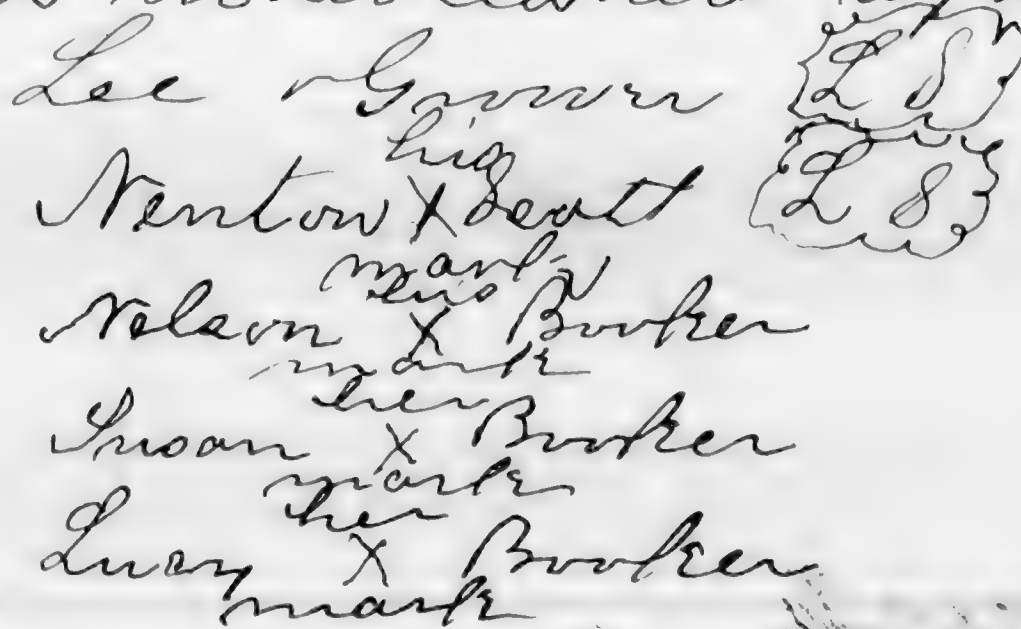 Lee Grover L S
his
Newton X Scott L S
mark
his
Nelson X Booker
mark
her
Susan X Booker
mark
her
Lucy X Booker
mark